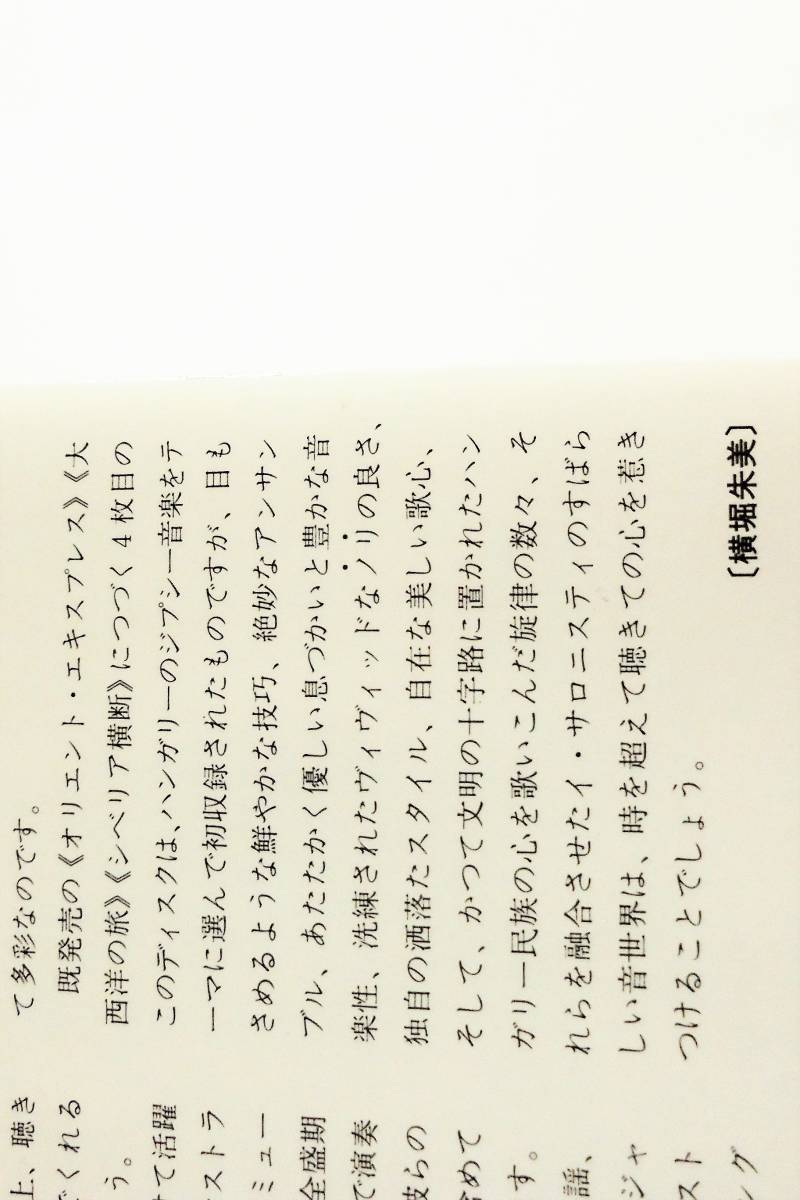 て多彩なのです。
既発売の《オリエント・エキスプレス》《大
西洋の旅》《シベリア横断》につづく4枚目の
このディスクは、ハンガリーのジプシー音楽をテ
ーマに選んで初収録されたものですが、目も
さめるような鮮やかな技巧、絶妙なアンサン
ブル、あたたかく優しい息づかいと豊かな音
楽性、洗練されたヴィヴィッドなノリの良さ、
独自の洒落たスタイル、自在な美しい歌心、
そして、かつて文明の十字路に置かれたハン
ガリー民族の心を歌いこんだ旋律の数々、そ
れらを融合させたイ・サロニスティのすばら
しい音世界は、時を超えて聴きての心を惹き
つけることでしょう。
〔横堀朱美〕
上、聴き
でくれる
う。
せて活躍
ストラ
ミュー
全盛期
で演奏
彼らの
含めて
す。
謡、
ジャ
スト
ング